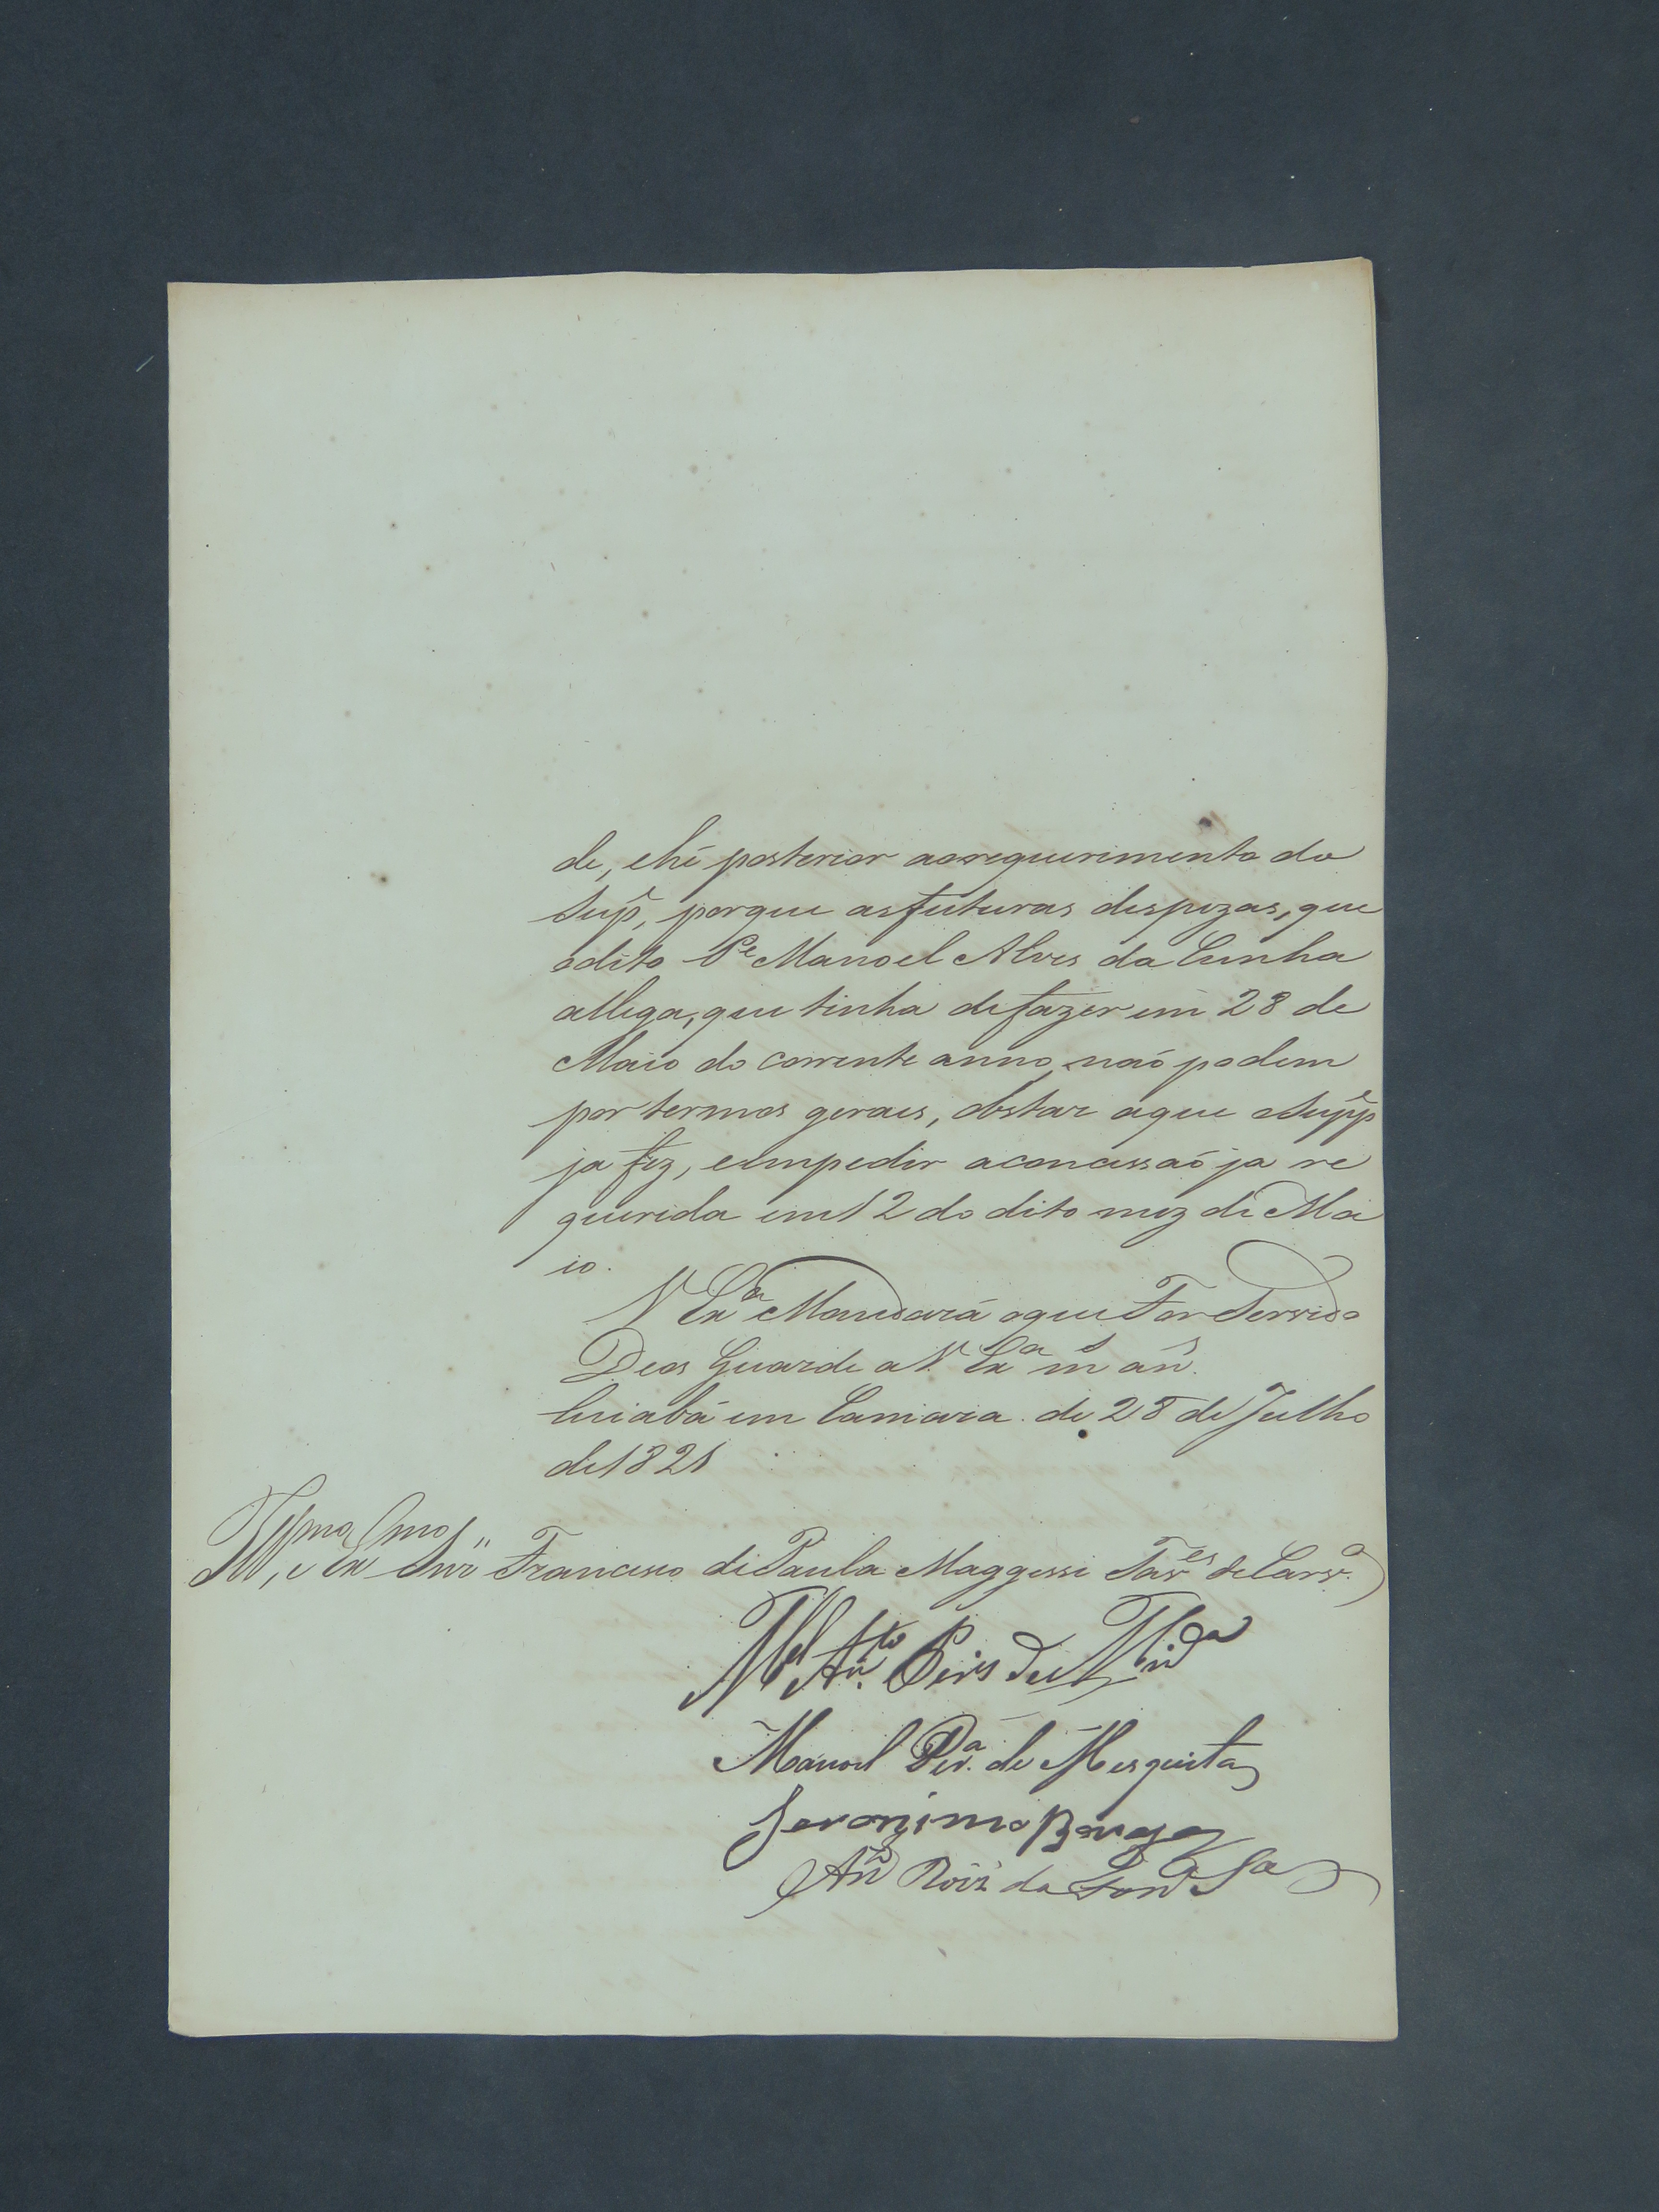 de, ehé posterior aorequerimento do
Supe, porque asfuturas despezas, que
odito Pe Manoel Alves da Cunha
allega, que tinha defazer em 28 de
Maio do corrente anno, naõ podem
por termos geraes, obstar aque Suppe
ja fez, eimpedir aconcessaõ ja re
querida em 12 do dito mez de Ma
io.
V Exa Mandará oque For Servido
Deos Guarde a V. Exa ms ans.
Cuiabá em Camara de 28 de Julho
de 1821
Illmo, e Exmo Snr Francisco de Paula Maggessi Tavres de Carvo.
Mel Anto Pires de Mirda
Manoel Pera de Mesquita
Jeronimo
Anto Roiz da